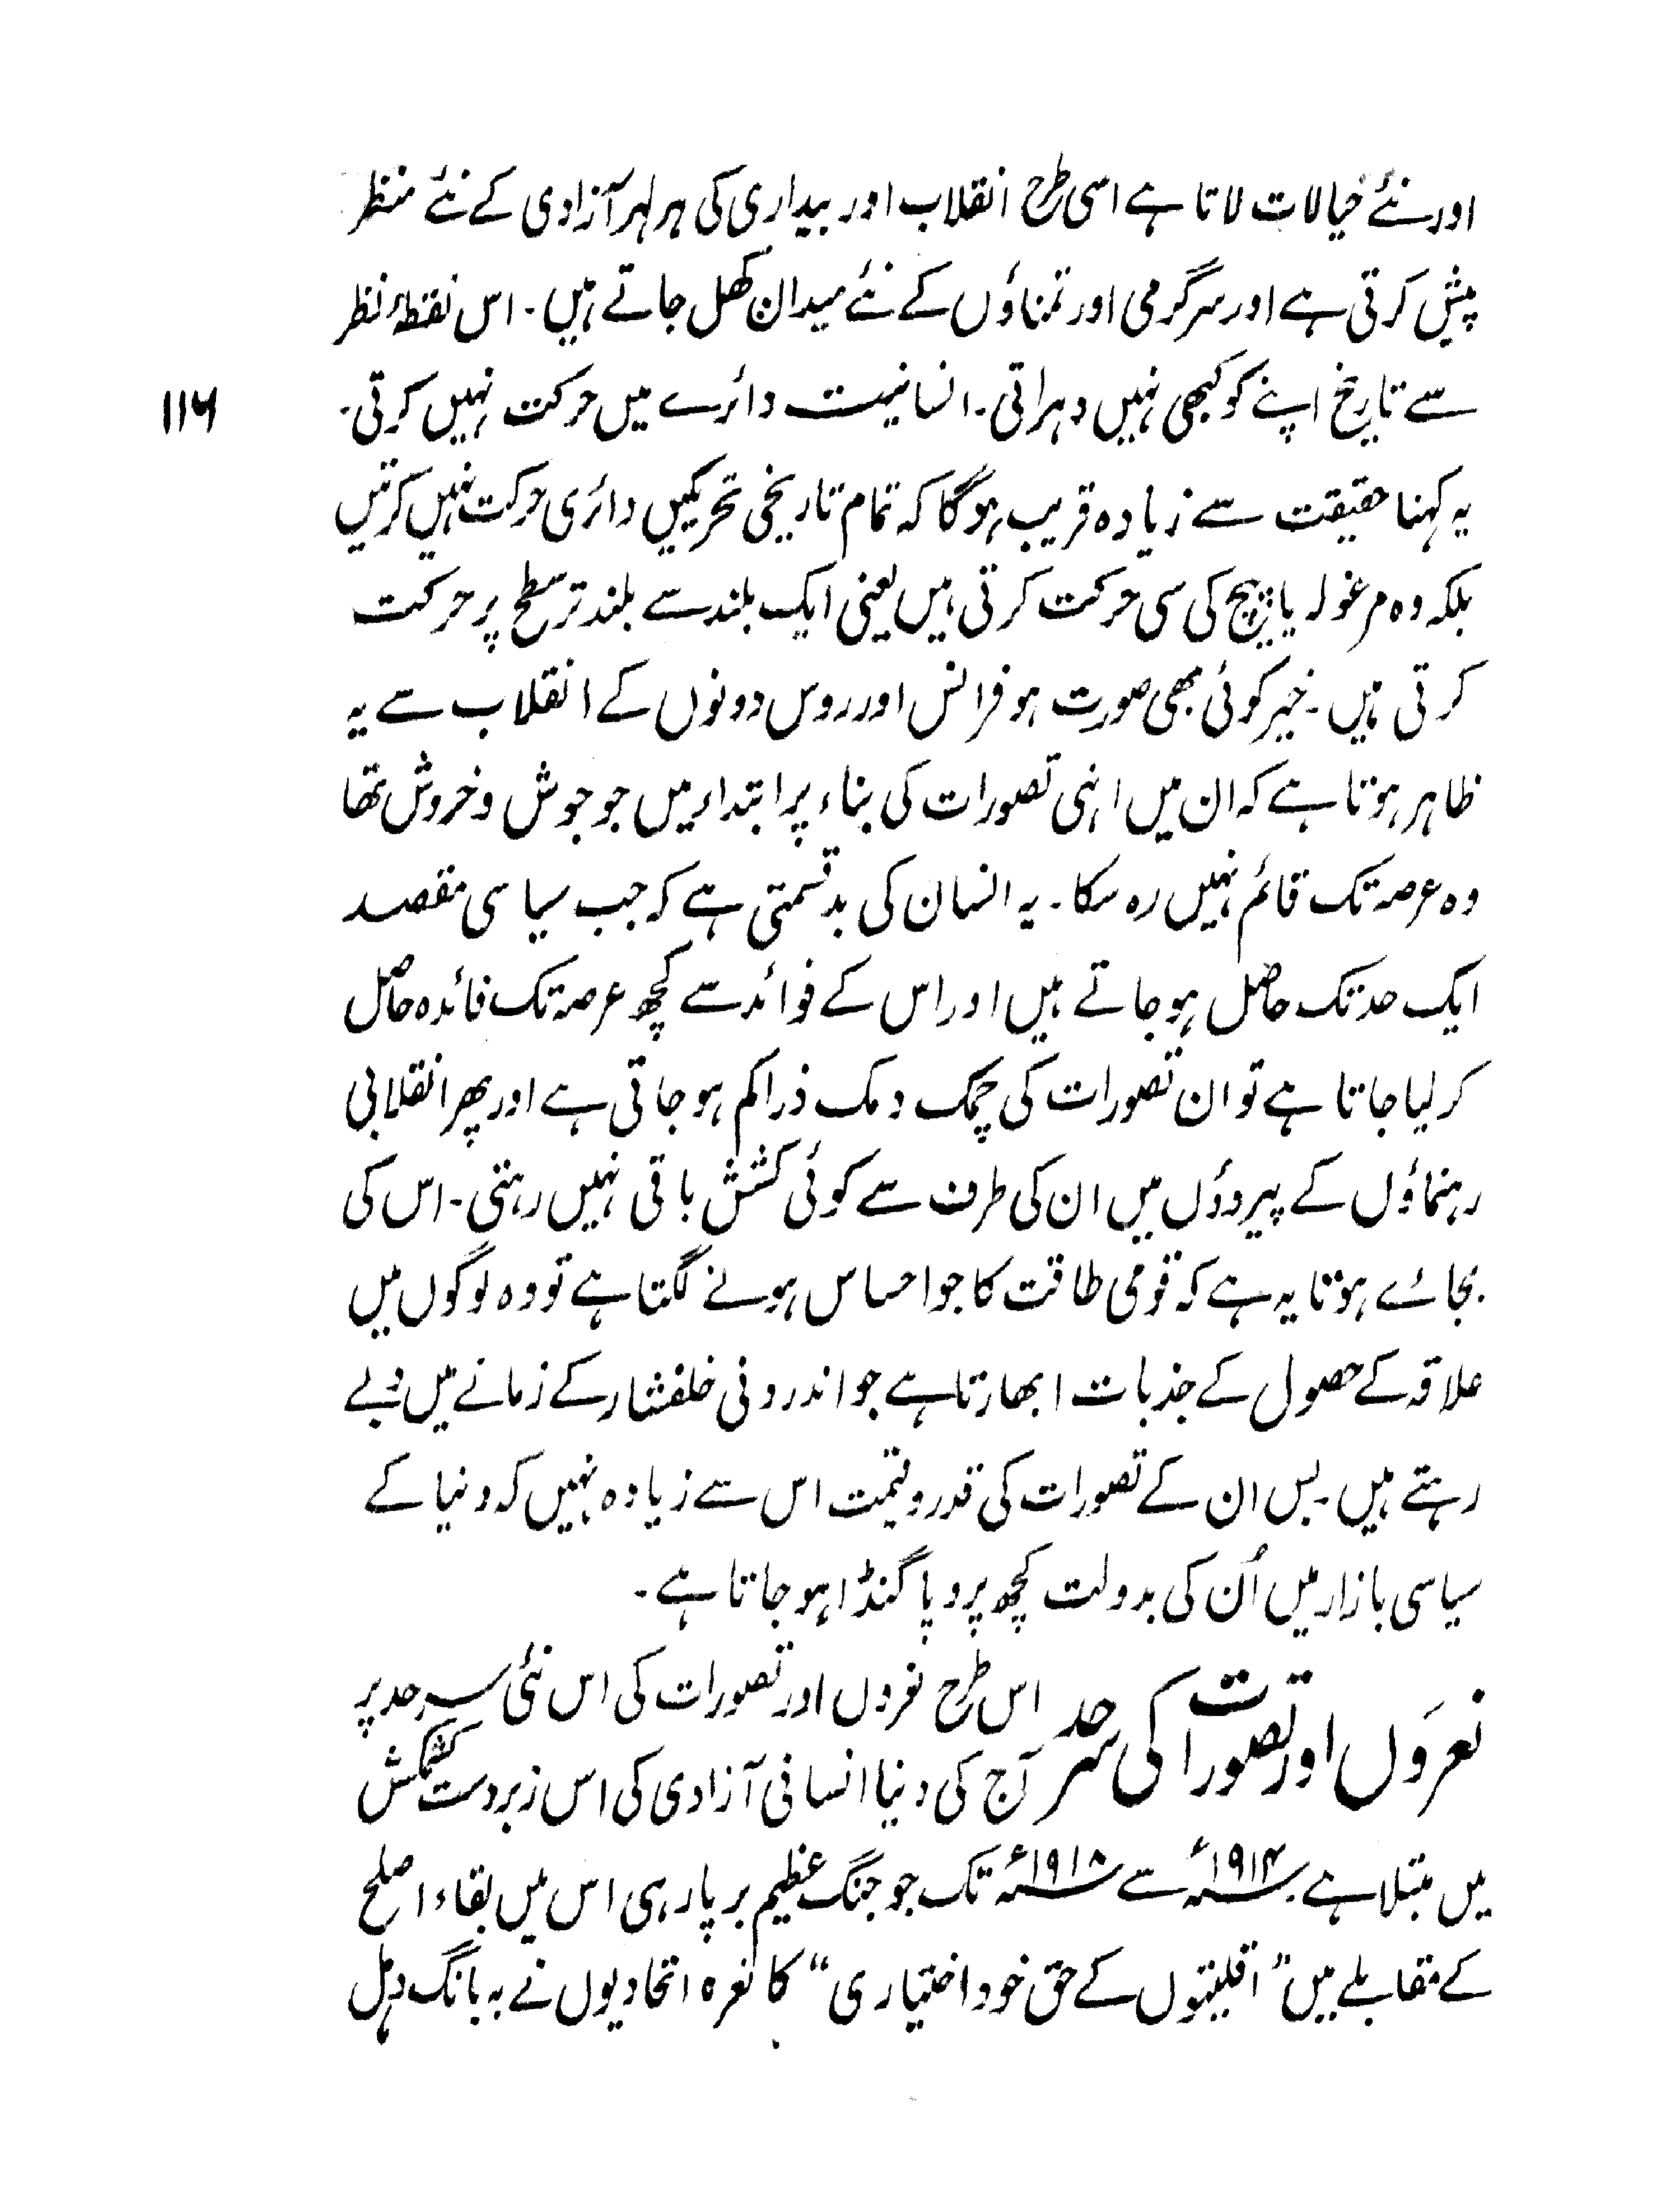 اور نئے خیالات لاتا ہے اسی طرح انقلاب اور بیداری کی ہر لہر آزادی کے نئے منظر
پیش کرتی ہے اور سرگرمی اور تمناؤں کے نئے میدان کھل جاتے ہیں ۔ اس نقطۂ نظر
سے تاریخ اپنے کو کبھی نہیں دہراتی ۔ انسانیت دائرے میں حرکت نہیں کرتی ۔
۱۱۶
یہ کہنا حقیقت سے زیادہ قریب ہوگا کہ تمام تاریخی تحریکیں دائری حرکت نہیں کرتیں
بلکہ وہ مرغولہ یا پیچ کی سی حرکت کرتی ہیں یعنی ایک بلند سے بلند تر سطح پر حرکت
کرتی ہیں ۔ خیر کوئی بھی صورت ہو فرانس اور روس دونوں کے انقلاب سے یہ
ظاہر ہوتا ہے کہ ان میں انہی تصورات کی بناء پر ابتداء میں جو جوش و خروش تھا
وہ عرصہ تک قائم نہیں رہ سکا ۔ یہ انسان کی بدقسمتی ہے کہ جب سیاسی مقصد
ایک حد تک حاصل ہو جاتے ہیں اور اس کے فوائد سے کچھ عرصہ تک فائدہ حاصل
کر لیا جاتا ہے تو ان تصورات کی چمک دمک ذرا کم ہو جاتی ہے اور پھر انقلابی
رہنماؤں کے پیروؤں میں ان کی طرف سے کوئی کشش باقی نہیں رہتی ۔ اس کی
بجائے ہوتا یہ ہے کہ قومی طاقت کا جو احساس ہونے لگتا ہے تو وہ لوگوں میں
علاقہ کے حصول کے جذبات ابھارتا ہے جو اندرونی خلفشار کے زمانے میں دبے
رہتے ہیں ۔ بس ان کے تصورات کی قدر و قیمت اس سے زیادہ نہیں کہ دنیا کے
سیاسی بازار میں اُن کی بدولت کچھ پروپاگنڈا ہو جاتا ہے ۔
نعروں اور تصورات کی سرحد
اس طرح نعروں اور تصورات کی اس نئی سرحد پر
آج کی دنیا انسانی آزادی کی اس زبردست کشمکش
میں مبتلا ہے ۔ ۱۹۱۴ء سے ۱۹۱۸ء تک جو جنگ عظیم برپا رہی اس میں بقاء اصلح
کے مقابلے میں "اقلیتوں کے حق خود اختیاری" کا نعرہ اتحادیوں نے بہ بانگ دہل